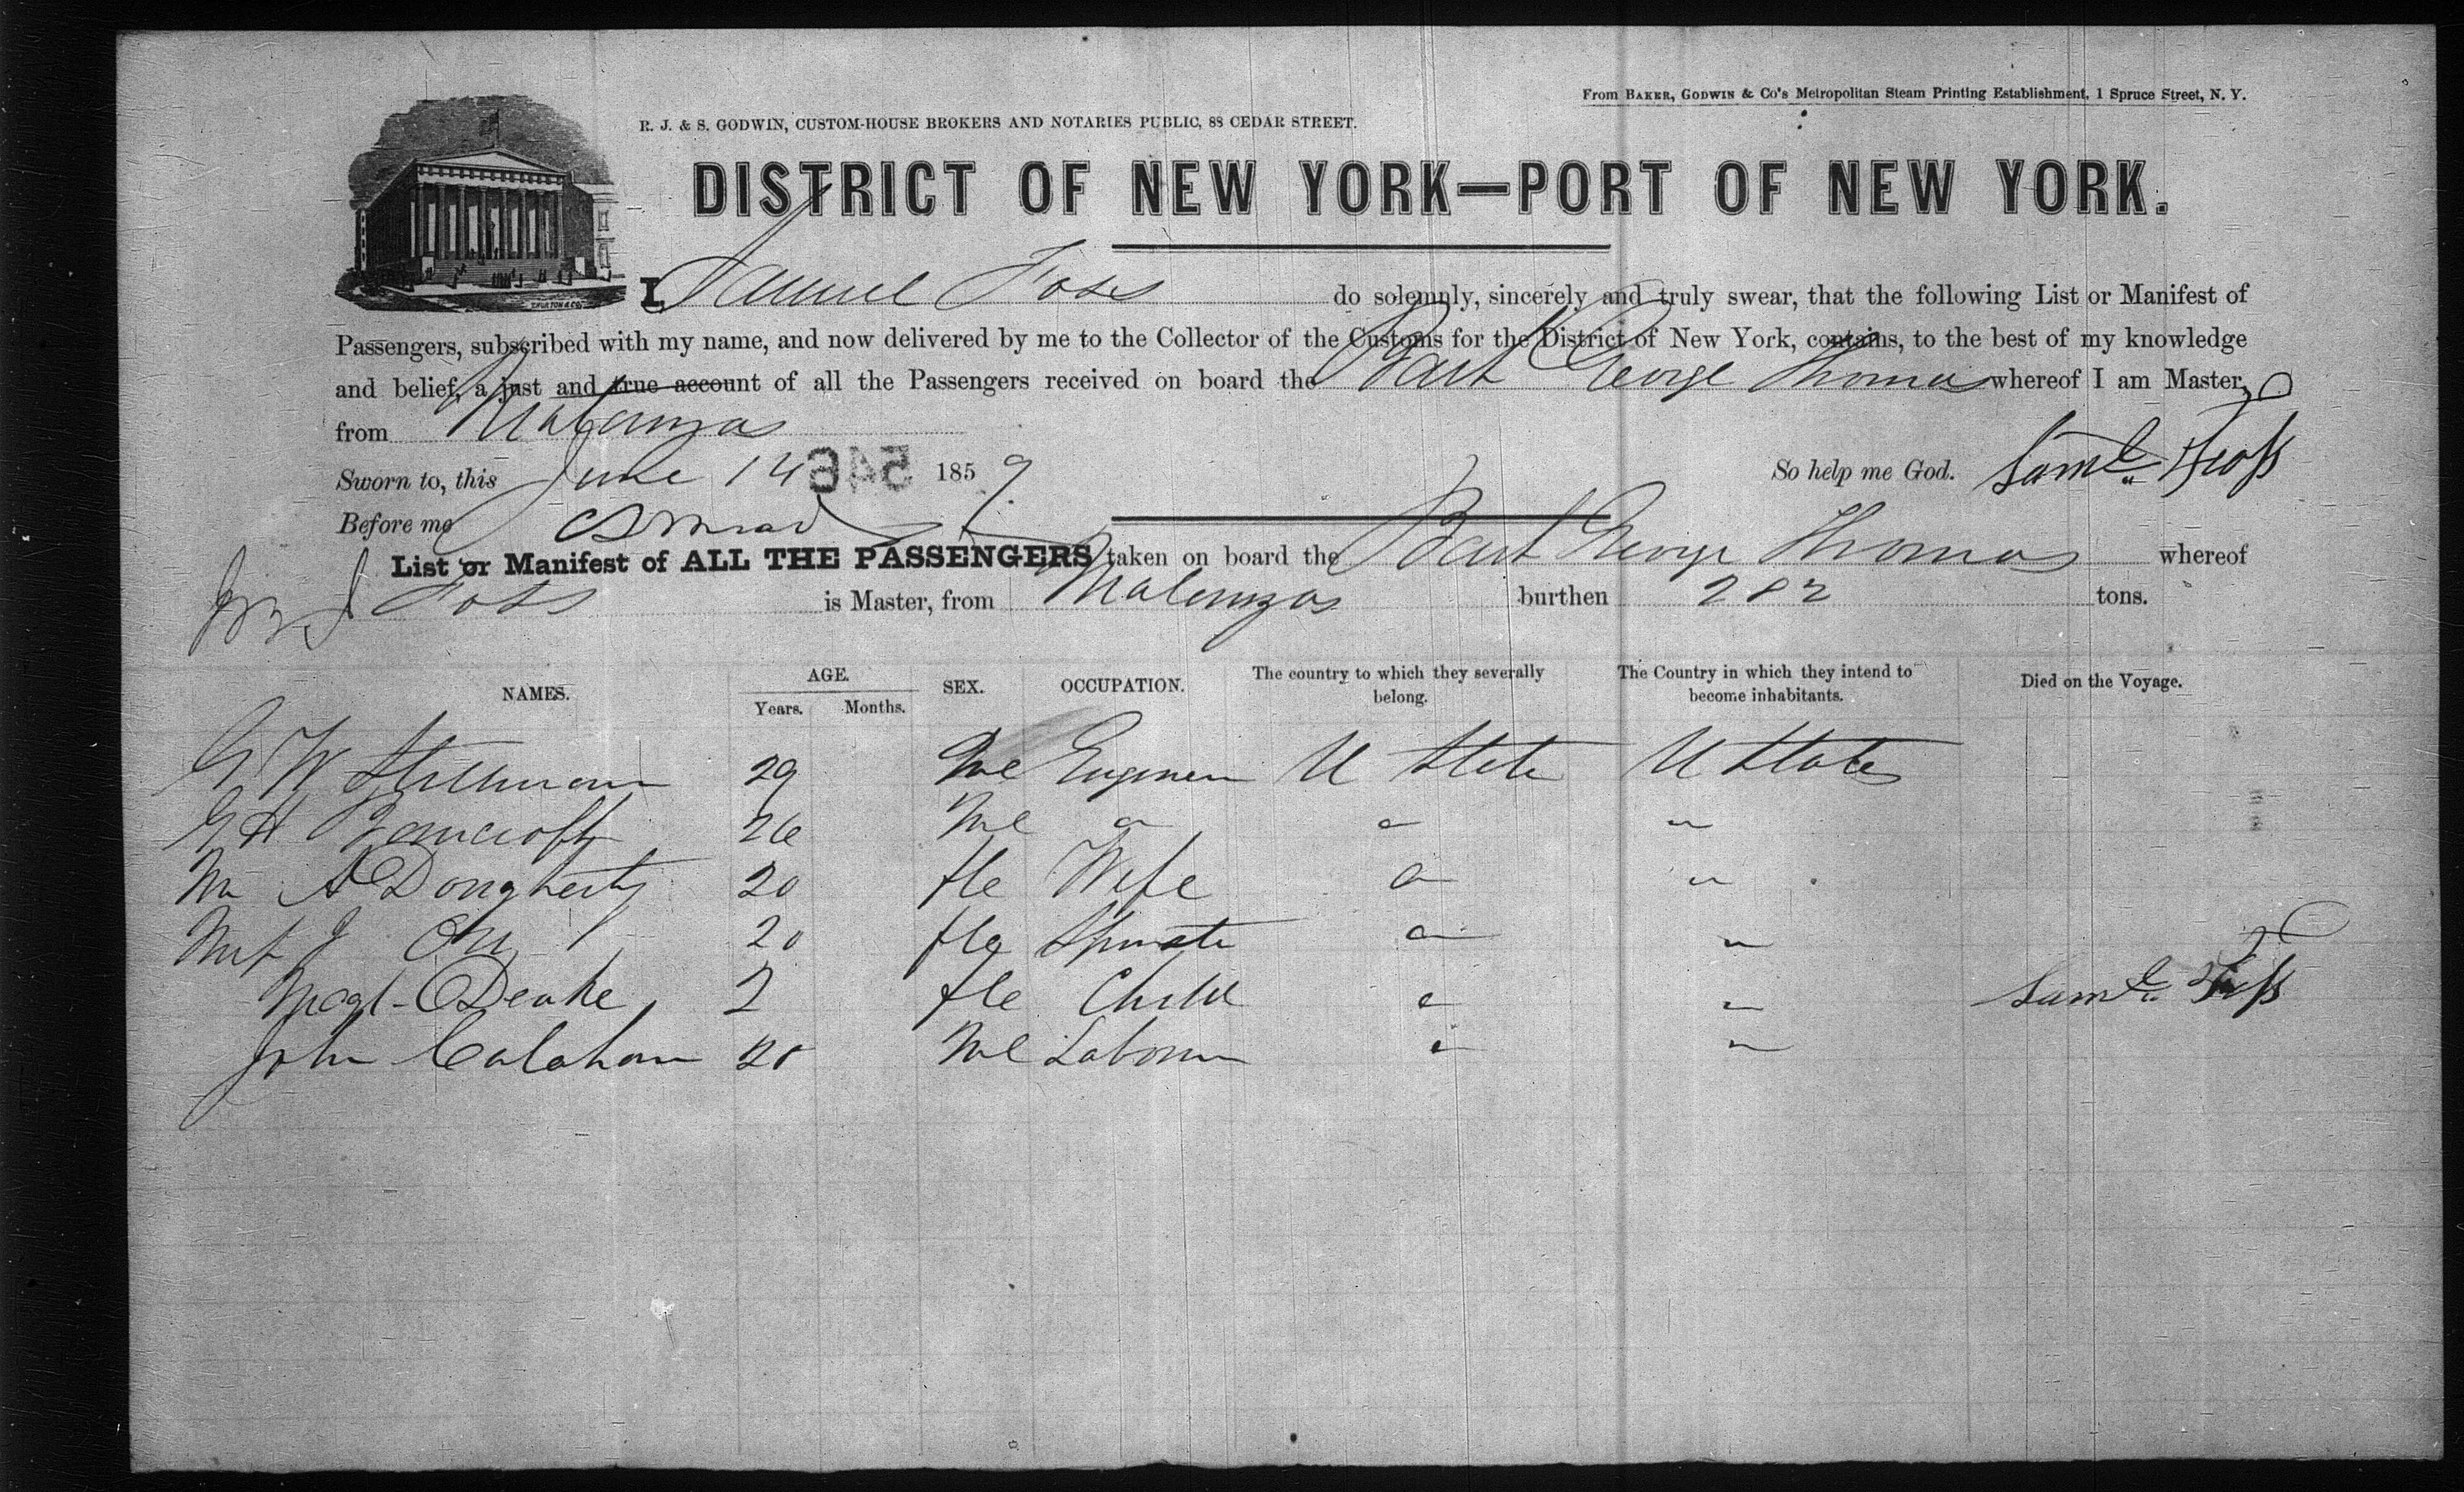 From BAKER, GODWIN & Co's Metropolitan Steam Printing Establishment, 1 Spruce Street, N. Y.
R. J. & S. GODWIN, CUSTOM-HOUSE BROKERS AND NOTARIES PUBLIC, 88 CEDAR STREET.
DISTRICT OF NEW YORK—PORT OF NEW YORK.
I, Samuel Foss do solemnly, sincerely and truly swear, that the following List or Manifest of
Passengers, subscribed with my name, and now delivered by me to the Collector of the Customs for the District of New York, contains, to the best of my knowledge
and belief, a just and true account of all the Passengers received on board the Bark George Thomas whereof I am Master,
from Matanzas
Sworn to, this June 14 546 1859 So help me God. Saml. Foss
Before me
List or Manifest of ALL THE PASSENGERS taken on board the Bark George Thomas whereof
Foss is Master, from Matanzas burthen 282 tons.
NAMES. AGE. Years. Months. SEX. OCCUPATION. The country to which they severally belong. The Country in which they intend to become inhabitants. Died on the Voyage.
G W Stillman 29 Me Engineer U State U States
G H Bancroft 26 Me " " "
A Dougherty 20 fle Wife " "
J 20 fle " "
Deake 2 fle Child " " Saml. Foss
John Calahan 20 Me Laborer " "